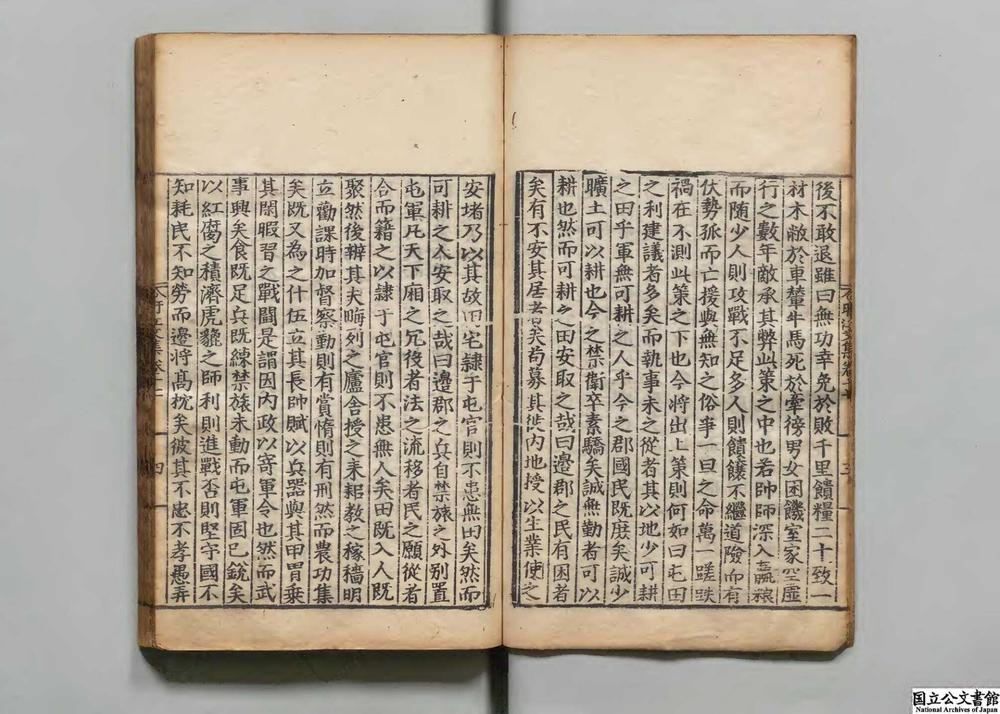 後不敢退雖曰無功幸免於敗千里饋糧二十致一
材木敝於車輦牛馬死於牽徬男女困饑室家空虛
行之數年敵承其弊此策之中也若帥師深入羸糧
而隨少人則攻戰不足多人則饋饟不繼道險而有
伏勢孤而亡援與無知之俗爭一旦之命萬一蹉跌
禍在不測此策之下也今將出上策則何如曰屯田
之利建議者多矣而執事未之從者其以地少可耕
之田乎軍無可耕之人乎今之郡國民既庶矣誠少
曠土可以耕也今之禁衛卒素驕矣誠無勤者可以
耕也然而可耕之田安取之哉曰邊郡之民有困者
矣有不安其居者矣苟募其徙內地授以生業使之
安堵乃以其故田宅隸于屯官則不患無田矣然而
可耕之人安取之哉曰邊郡之兵自禁旅之外别置
屯軍凡天下廂之冗役者法之流移者民之願從者
合而籍之以隸于屯官則不患無人矣田既入人既
聚然後辨其夫畮列之廬舍授之耒耜教之稼穡明
立勸課時加督察勤則有賞惰則有刑然而農功集
矣既又為之什伍立其長帥賦以兵器與其甲胃乗
其閑暇習之戰鬪是謂因內政以寄軍令也然而武
事興矣食既足兵既練禁旅未動而屯軍固已銳矣
以紅腐之積濟虎貔之師利則進戰否則堅守國不
知耗民不知勞而邊將髙枕矣彼其不忠不孝愚弄
四
国立公文書館
National Archives of Japan